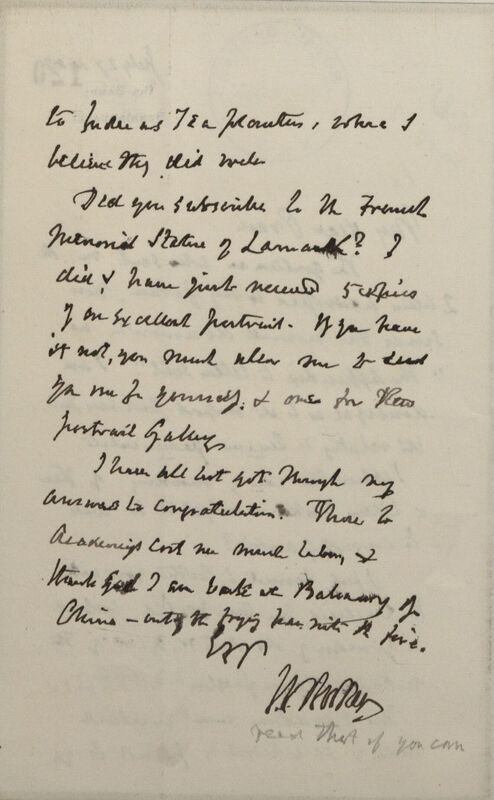 to India as Tea planters, where I
believe they did well
Did you subscribe to the French
Memorial Statue of Lamarck? I
did & have just received 5 copies
of an excellent portrait. If you have
it not, you must allow me to send
you one for yourself, & one for the
Portrait Gallery
I have all but got through my
answers to congratulation. Those to
Academies cost me much labor, &
thank God I am back at Balsams of
China — out of the frying pan into the fire.
read that if you can